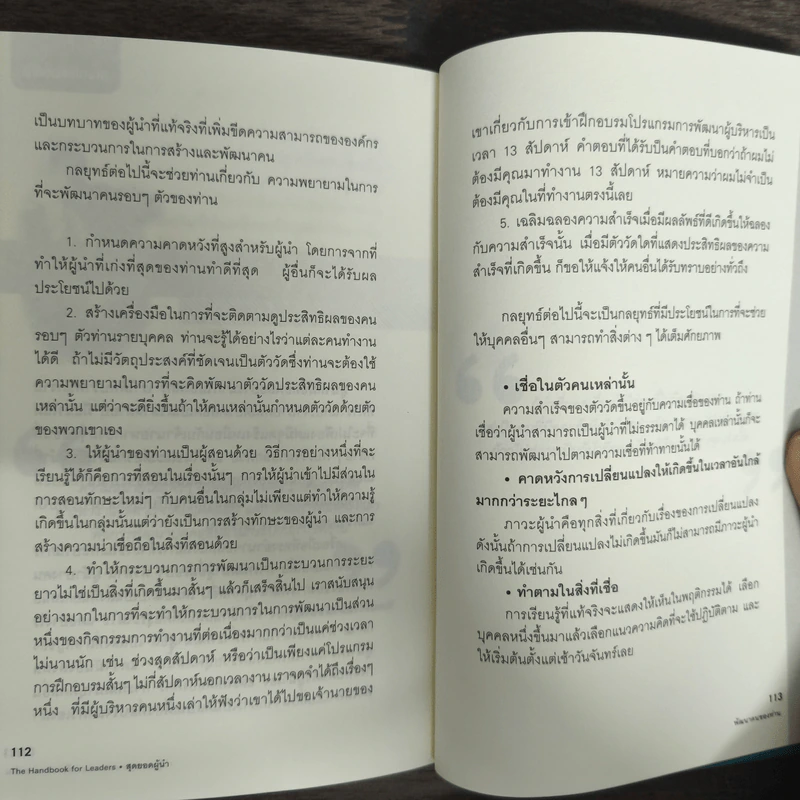 เป็นบทบาทของผู้นำที่แท้จริงที่เพิ่มขีดความสามารถขององค์กร
และกระบวนการในการสร้างและพัฒนาคน
กลยุทธ์ต่อไปนี้จะช่วยท่านเกี่ยวกับ ความพยายามในการ
ที่จะพัฒนาคนรอบๆ ตัวของท่าน
1. กำหนดความคาดหวังที่สูงสำหรับผู้นำ โดยการจากที่
ทำให้ผู้นำที่เก่งที่สุดของท่านทำดีที่สุด ผู้อื่นก็จะได้รับผล
ประโยชน์ไปด้วย
2. สร้างเครื่องมือในการที่จะติดตามดูประสิทธิผลของคน
รอบๆ ตัวท่านรายบุคคล ท่านจะรู้ได้อย่างไรว่าแต่ละคนทำงาน
ได้ดี ถ้าไม่มีวัตถุประสงค์ที่ชัดเจนเป็นตัววัดซึ่งท่านจะต้องใช้
ความพยายามในการที่จะคิดพัฒนาตัววัดประสิทธิผลของคน
เหล่านั้น แต่ว่าจะดียิ่งขึ้นถ้าให้คนเหล่านั้นกำหนดตัววัดด้วยตัว
ของพวกเขาเอง
3. ให้ผู้นำของท่านเป็นผู้สอนด้วย วิธีการอย่างหนึ่งที่จะ
เรียนรู้ได้ก็คือการที่สอนในเรื่องนั้นๆ การให้ผู้นำเข้าไปมีส่วนใน
การสอนทักษะใหม่ๆ กับคนอื่นในกลุ่มไม่เพียงแต่ทำให้ความรู้
เกิดขึ้นในกลุ่มนั้นแต่ว่ายังเป็นการสร้างทักษะของผู้นำ และการ
สร้างความน่าเชื่อถือในสิ่งที่สอนด้วย
4. ทำให้กระบวนการการพัฒนาเป็นกระบวนการระยะ
ยาวไม่ใช่เป็นสิ่งที่เกิดขึ้นมาสั้นๆ แล้วก็เสร็จสิ้นไป เราสนับสนุน
อย่างมากในการที่จะทำให้กระบวนการในการพัฒนาเป็นส่วน
หนึ่งของกิจกรรมการทำงานที่ต่อเนื่องมากกว่าเป็นแค่ช่วงเวลา
ไม่นานนัก เช่น ช่วงสุดสัปดาห์ หรือว่าเป็นเพียงแค่โปรแกรม
การฝึกอบรมสั้นๆ ไม่กี่สัปดาห์นอกเวลางาน เราจดจำได้ถึงเรื่องๆ
หนึ่ง ที่มีผู้บริหารคนหนึ่งเล่าให้ฟังว่าเขาได้ไปขอเจ้านายของ
112
The Handbook for Leaders • สุดยอดผู้นำ
เขาเกี่ยวกับการเข้าฝึกอบรมโปรแกรมการพัฒนาผู้บริหารเป็น
เวลา 13 สัปดาห์ คำตอบที่ได้รับเป็นคำตอบที่บอกว่าถ้าผมไม่
ต้องมีคุณมาทำงาน 13 สัปดาห์ หมายความว่าผมไม่จำเป็น
ต้องมีคุณในที่ทำงานตรงนี้เลย
5. เฉลิมฉลองความสำเร็จเมื่อมีผลลัพธ์ที่ดีเกิดขึ้นให้ฉลอง
กับความสำเร็จนั้น เมื่อมีตัววัดใดที่แสดงประสิทธิผลของความ
สำเร็จที่เกิดขึ้น ก็ขอให้แจ้งให้คนอื่นได้รับทราบอย่างทั่วถึง
กลยุทธ์ต่อไปนี้จะเป็นกลยุทธ์ที่มีประโยชน์ในการที่จะช่วย
ให้บุคคลอื่นๆ สามารถทำสิ่งต่าง ๆ ได้เต็มศักยภาพ
• เชื่อในตัวคนเหล่านั้น
ความสำเร็จของตัววัดขึ้นอยู่กับความเชื่อของท่าน ถ้าท่าน
เชื่อว่าผู้นำสามารถเป็นผู้นำที่ไม่ธรรมดาได้ บุคคลเหล่านั้นก็จะ
สามารถพัฒนาไปตามความเชื่อที่ท้าทายนั้นได้
• คาดหวังการเปลี่ยนแปลงให้เกิดขึ้นในเวลาอันใกล้
มากกว่าระยะไกล ๆ
ภาวะผู้นำคือทุกสิ่งที่เกี่ยวกับเรื่องของการเปลี่ยนแปลง
ดังนั้นถ้าการเปลี่ยนแปลงไม่เกิดขึ้นมันก็ไม่สามารถมีภาวะผู้นำ
เกิดขึ้นได้เช่นกัน
• ทำตามในสิ่งที่เชื่อ
การเรียนรู้ที่แท้จริงจะแสดงให้เห็นในพฤติกรรมได้ เลือก
บุคคลหนึ่งขึ้นมาแล้วเลือกแนวความคิดที่จะใช้ปฏิบัติตาม และ
ให้เริ่มต้นตั้งแต่เช้าวันจันทร์เลย
113
พัฒนาคนของท่าน